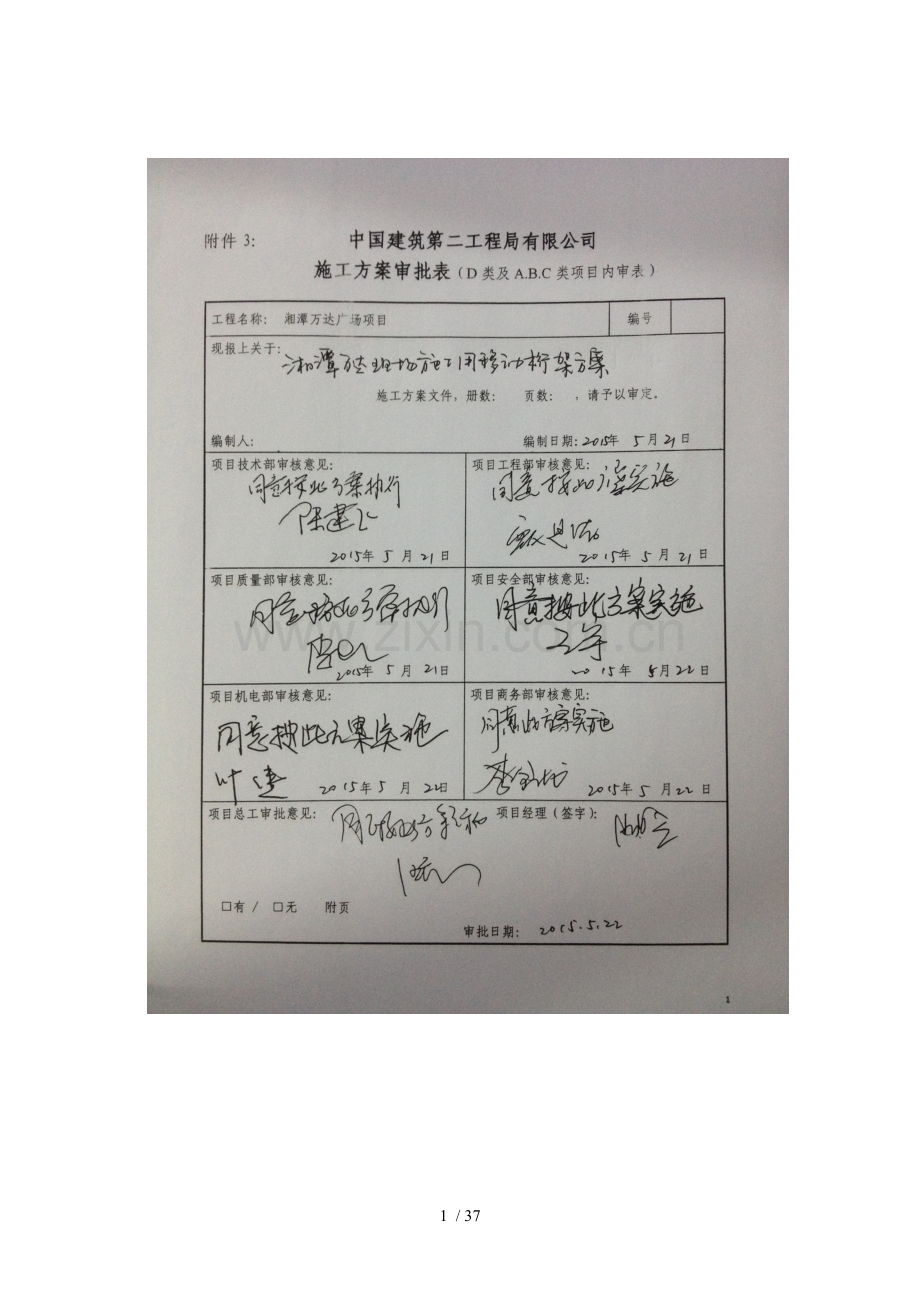 附件 3:
中国建筑第二工程局有限公司
施工方案审批表（D 类及 A.B.C 类项目内审表）
工程名称: 湘潭万达广场项目
编号
现报上关于:
湘潭万达现场施工用移动桁架方案
施工方案文件，册数: 页数: ，请予以审定。
编制人:
编制日期: 2015年 5月21日
项目技术部审核意见:
同意按此方案执行
陈建飞
2015年 5 月 21日
项目工程部审核意见:
同意按此方案实施
2015年 5 月 21日
项目质量部审核意见:
同意按此方案执行
2015年 5 月 21日
项目安全部审核意见:
同意按此方案实施
王宇
2015年 5月22日
www.zixin.com.cn
项目机电部审核意见:
同意按此方案实施
叶
2015年 5 月 22日
项目商务部审核意见:
同意此方案实施
李
2015年 5 月 22日
项目总工审批意见:
项目经理（签字）:
□有 / □无 附页
审批日期: 2015.5.22
1
1 / 37